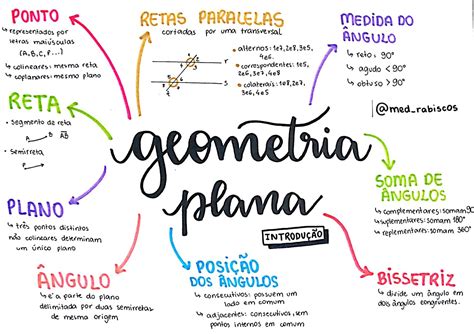 PONTO
↳ representados por
letras maiúsculas
(A,B,C,F...)
↳ colineares: mesma reta
↳ coplanares: mesmo plano
RETAS PARALELAS
cortadas por uma transversal
• alternos: 1e7, 2e8, 3e5,
4e6
• correspondentes: 1e5,
2e6, 3e7, 4e8
• colaterais: 1e8, 2e7,
3e6, 4e5
MEDIDA DO
ÂNGULO
↳ reto: 90°
↳ agudo < 90°
↳ obtuso > 90°
@med_rabiscos
RETA
• segmento de reta
• Semirreta
geometria
plana
INTRODUÇÃO
SOMA DE
ÂNGULOS
↳ complementares: somam 90°
↳ suplementares: somam 180°
↳ replementares: somam 360°
PLANO
↳ três pontos distintos
não colineares determinam
um único plano
ÂNGULO
↳ é a parte do plano
delimitada por duas semirretas
de mesma origem
POSIÇÃO
DOS ÂNGULOS
↳ consecutivos: possuem um
lado em comum
↳ adjacentes: consecutivos, sem
pontos internos em comum
BISSETRIZ
↳ divide um ângulo em
dois ângulos congruentes.